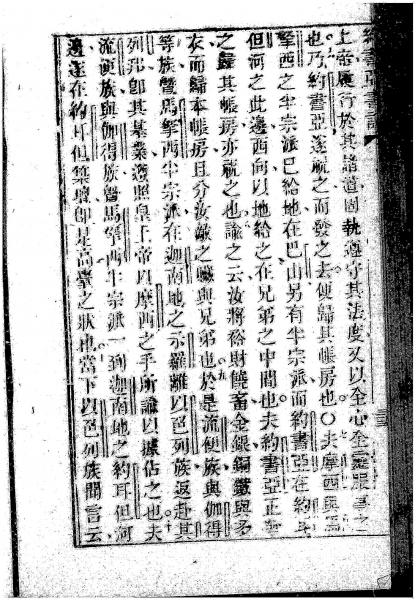 約書亞書記
上帝履行於其諸道固執遵守其法度又以全心全靈服事之
也乃約書亞遂祝之而發之去便歸其帳房也〇夫摩西與馬
拏西之半宗派已給地在巴山另有半宗派而約書亞在約耳
但河之此邊西向以地給之在兄弟之中間也夫約書亞正發
之歸其帳房亦祝之也諭之云汝將裕財饒畜金銀銅鐵與多
衣而歸本帳房且分汝敵之贓與兄弟也於是流便族與伽得
等族暨馬拏西半宗派在迦南地之示羅離以色列族返赴其
列邦卽其基業遵照皇上帝以摩西之手所諭以據佔之也夫
流便族與伽得族暨馬拏西半宗派一到迦南地之約耳但河
邊遂在約耳但築壇卽是高擧之狀也當下以色列族聞言云